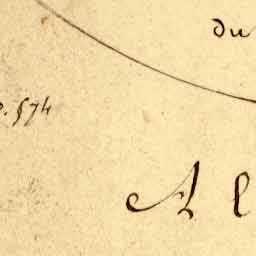 du
p. 574
Al